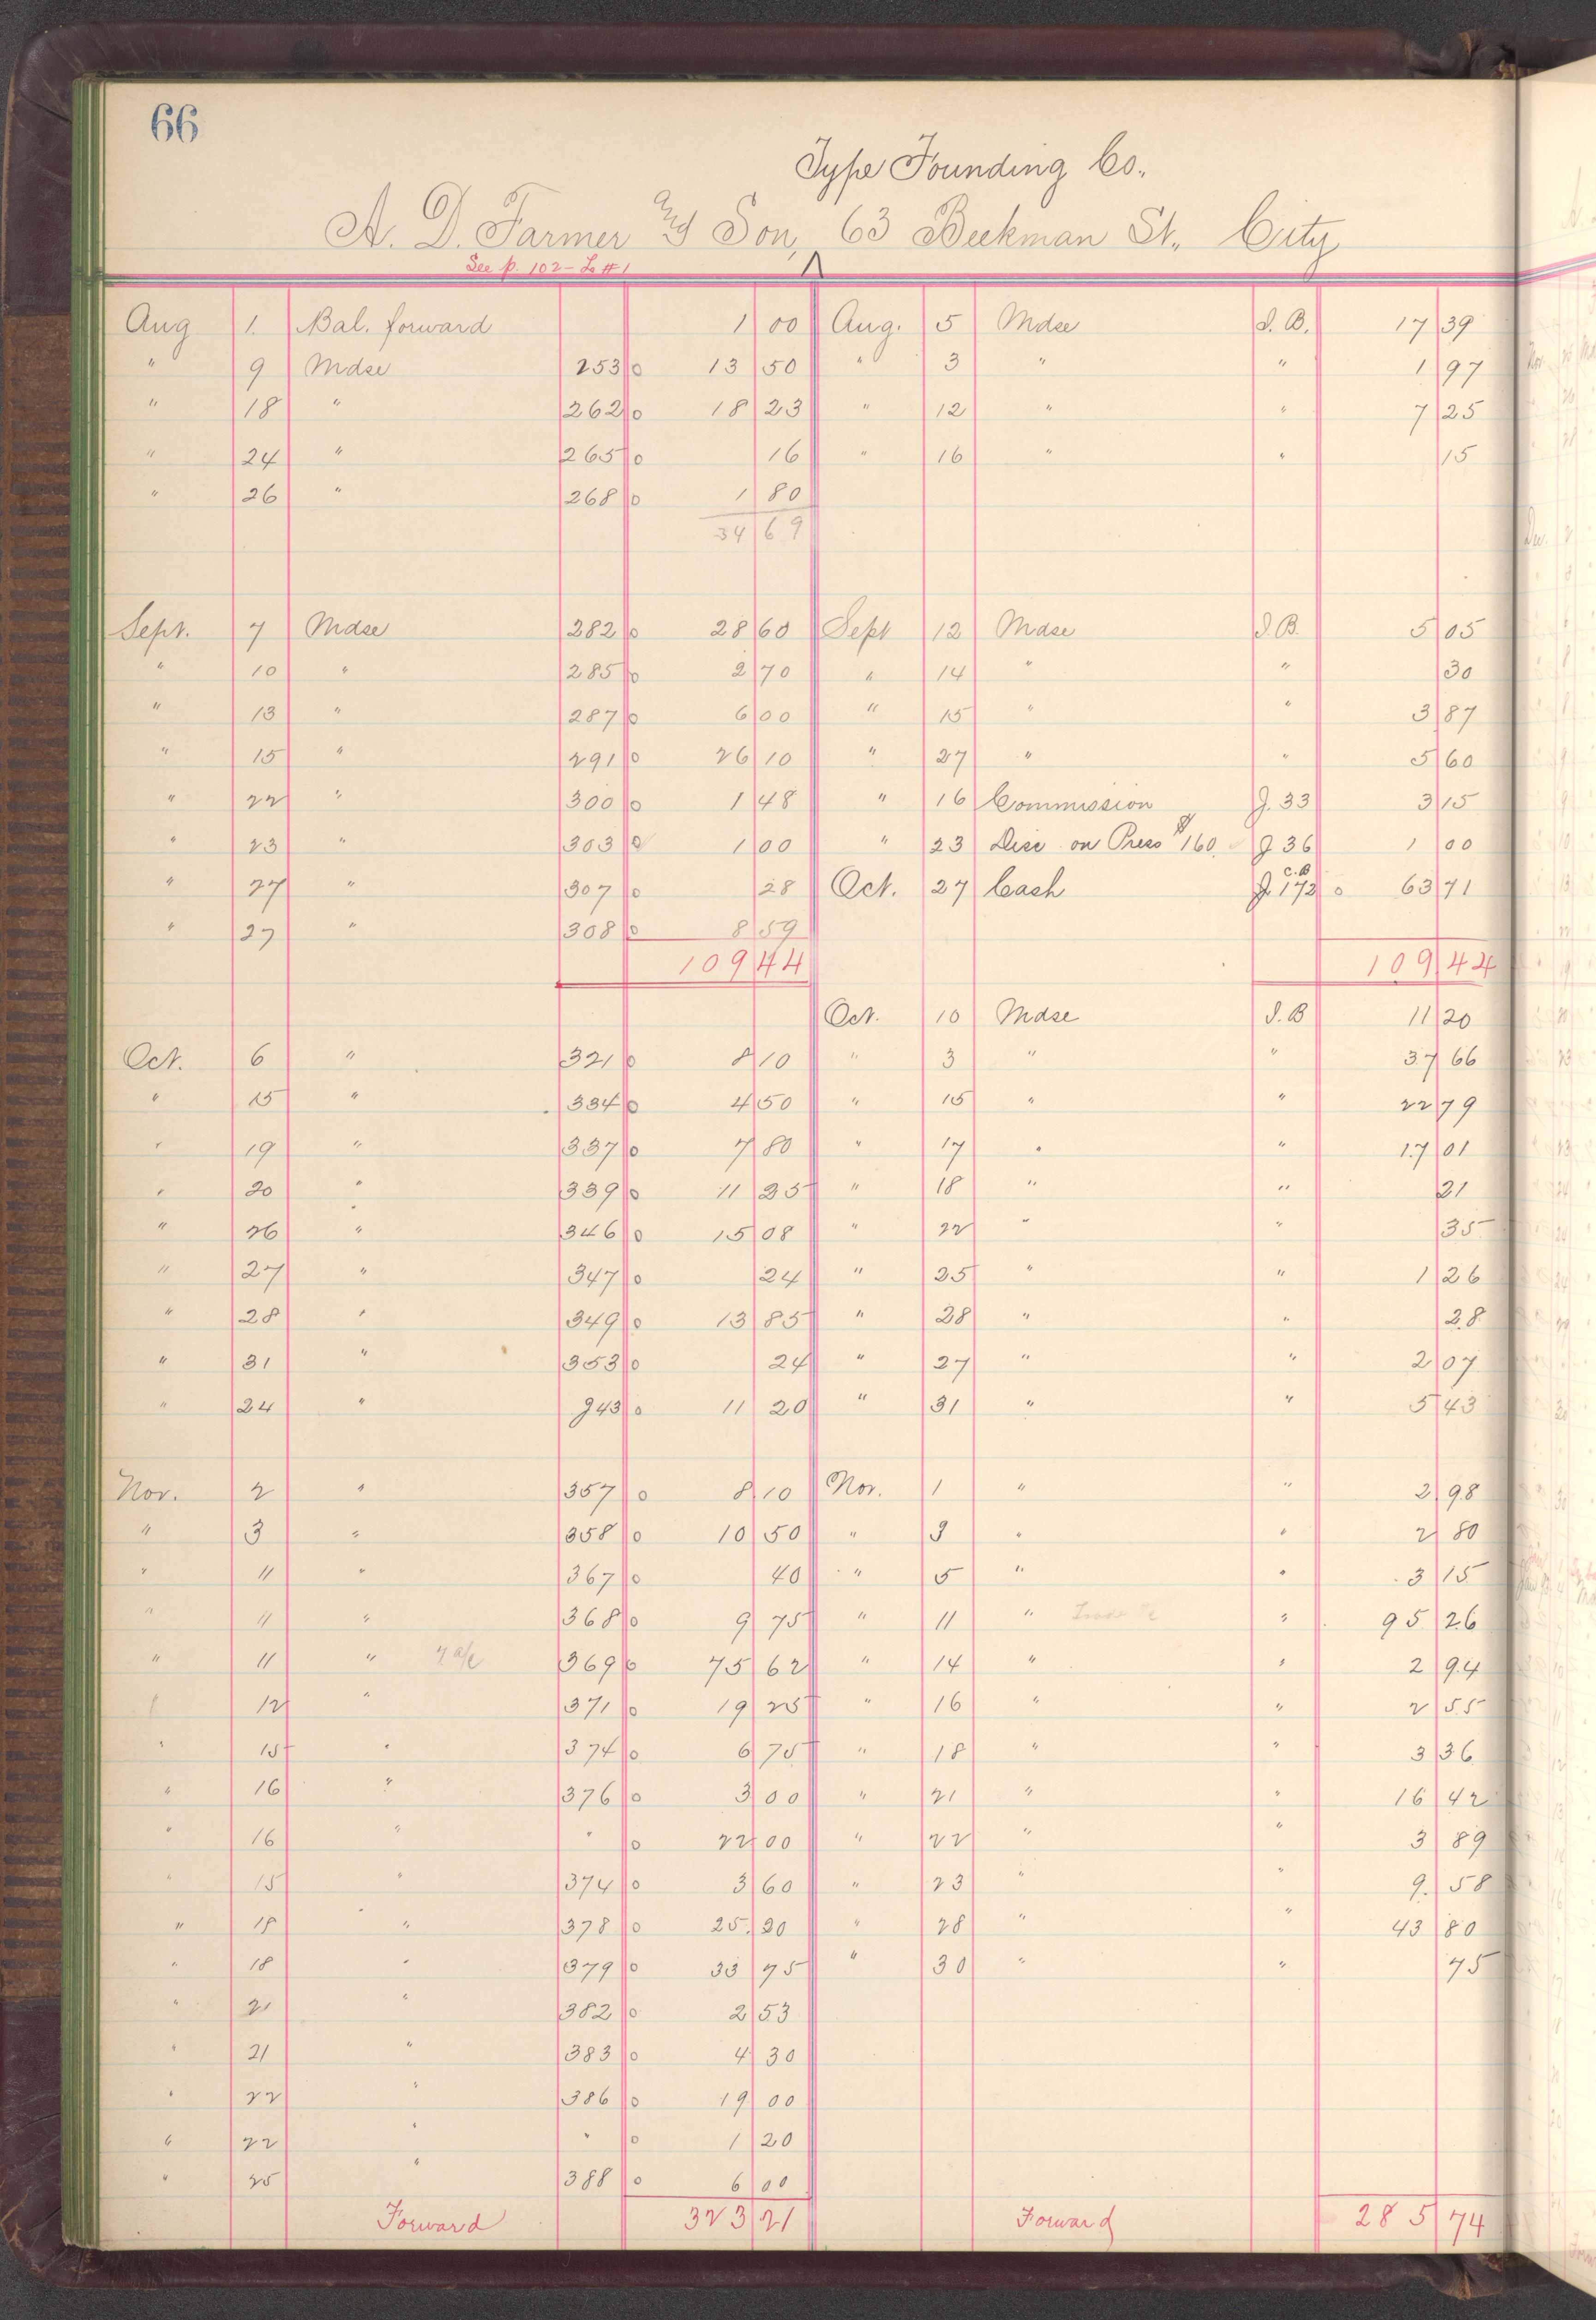 66
Type Founding Co.
A. D. Farmer and Son, ^ 63 Beekman St., City
See p. 102 - L #1
Aug 1. Bal. forward 1 00 Aug. 5 Mdse I. B. 17 39
" 9 Mdse 253 0 13 50 " 3 " " 1 97
" 18 " 262 0 18 23 " 12 " " 7 25
" 24 " 265 0 16 " 16 " " 15
" 26 " 268 0 1 80
34 69
Sept. 7 Mdse 282 0 28 60 Sept 12 Mdse I. B. 5 05
" 10 " 285 0 2 70 " 14 " " 30
" 13 " 287 0 6 00 " 15 " " 3 87
" 15 " 291 0 26 10 " 27 " " 5 60
" 22 " 300 0 1 48 " 16 Commission J. 33 3 15
" 23 " 303 0 1 00 " 23 Disc on Press $160. J 36 1 00
" 27 " 307 0 28 Oct. 27 Cash C.B J. 172 0 63 71
" 27 " 308 0 8 59
109 44 109 44
Oct. 10 Mdse I. B 11 20
Oct. 6 " 321 0 8 10 " 3 " " 37 66
" 15 " 334 0 4 50 " 15 " " 22 79
" 19 " 337 0 7 80 " 17 " " 17 01
" 20 " 339 0 11 25 " 18 " " 21
" 26 " 346 0 15 08 " 22 " " 35
" 27 " 347 0 24 " 25 " " 1 26
" 28 " 349 0 13 85 " 28 " " 28
" 31 " 353 0 24 " 27 " " 2 07
" 24 " J43 0 11 20 " 31 " " 5 43
Nov. 2 " 357 0 8 10 Nov. 1 " " 2 98
" 3 " 358 0 10 50 " 3 " " 2 80
" 11 " 367 0 40 " 5 " " 3 15
" 11 " 368 0 9 75 " 11 " " 95 26
" 11 " a/c 369 0 75 62 " 14 " " 2 94
" 12 " 371 0 19 25 " 16 " " 2 55
" 15 " 374 0 6 75 " 18 " " 3 36
" 16 " 376 0 3 00 " 21 " " 16 42
" 16 " " 0 22 00 " 22 " " 3 89
" 15 " 374 0 3 60 " 23 " " 9 58
" 18 " 378 0 25 20 " 28 " " 43 80
" 18 " 379 0 33 75 " 30 " " 75
" 21 " 382 0 2 53
" 21 " 383 0 4 30
" 22 " 386 0 19 00
" 22 " " 0 1 20
" 25 " 388 0 6 00
Forward 323 21 Forward 285 74